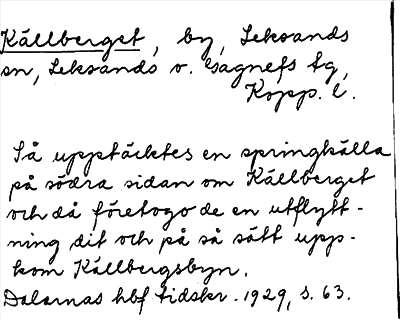 Källberget, by, Leksands
sn, Leksands o. Gagnefs tg,
Kopp. l.
Så upptäcktes en springkälla
på södra sidan om Källberget
och då företogo de en utflytt-
ning dit och på så sätt upp-
kom Källbergsbyn.
Dalarnas hbf tidskr. 1929, s. 63.